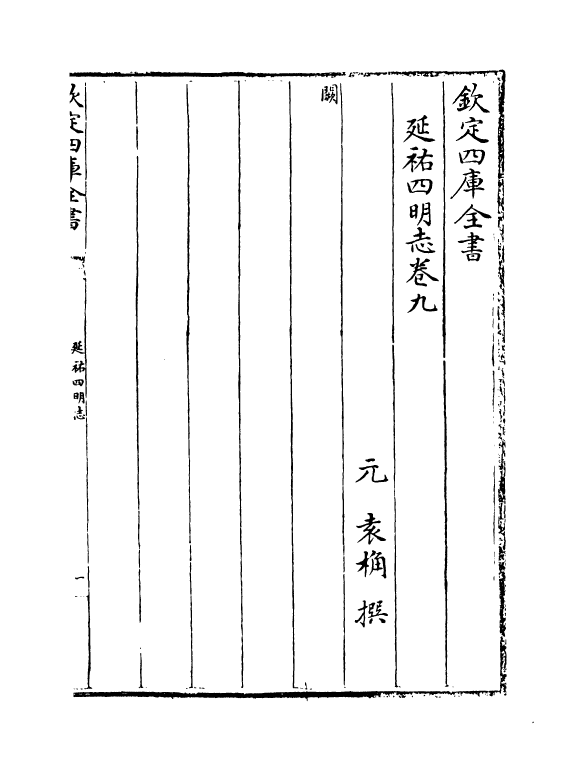 欽定四庫全書
延祐四明志卷九
元 袁桷 撰
闕
欽定四庫全書
延祐四明志
一